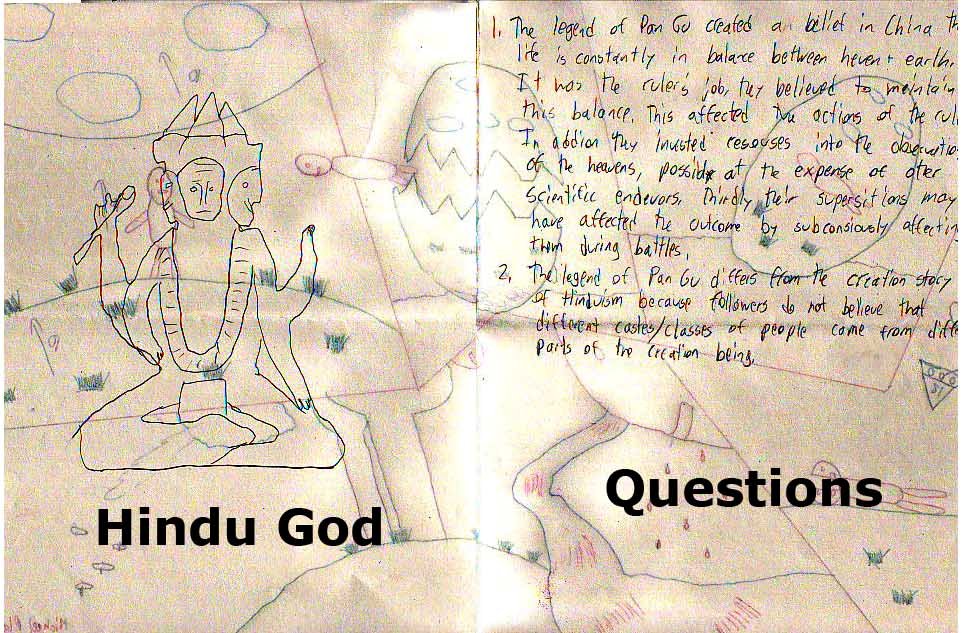 1. The legend of Pan Gu created an belief in China th
life is constantly in balance between heven + earth.
It was the ruler's job, they believed to maintain
this balance. This affected the actions of the rul
In addion they invusted resouses into the observatio
of the heavens, possible at the expense of other
scientific endevors. Thirdly their supersitions may
have affected the outcome by subconsiously affectin
them during battles.
2. The legend of Pan Gu differs from the creation story
of Hinduism because followers do not believe that
different castes/classes of people came from diffe
parts of the creation being.
Questions
Hindu God